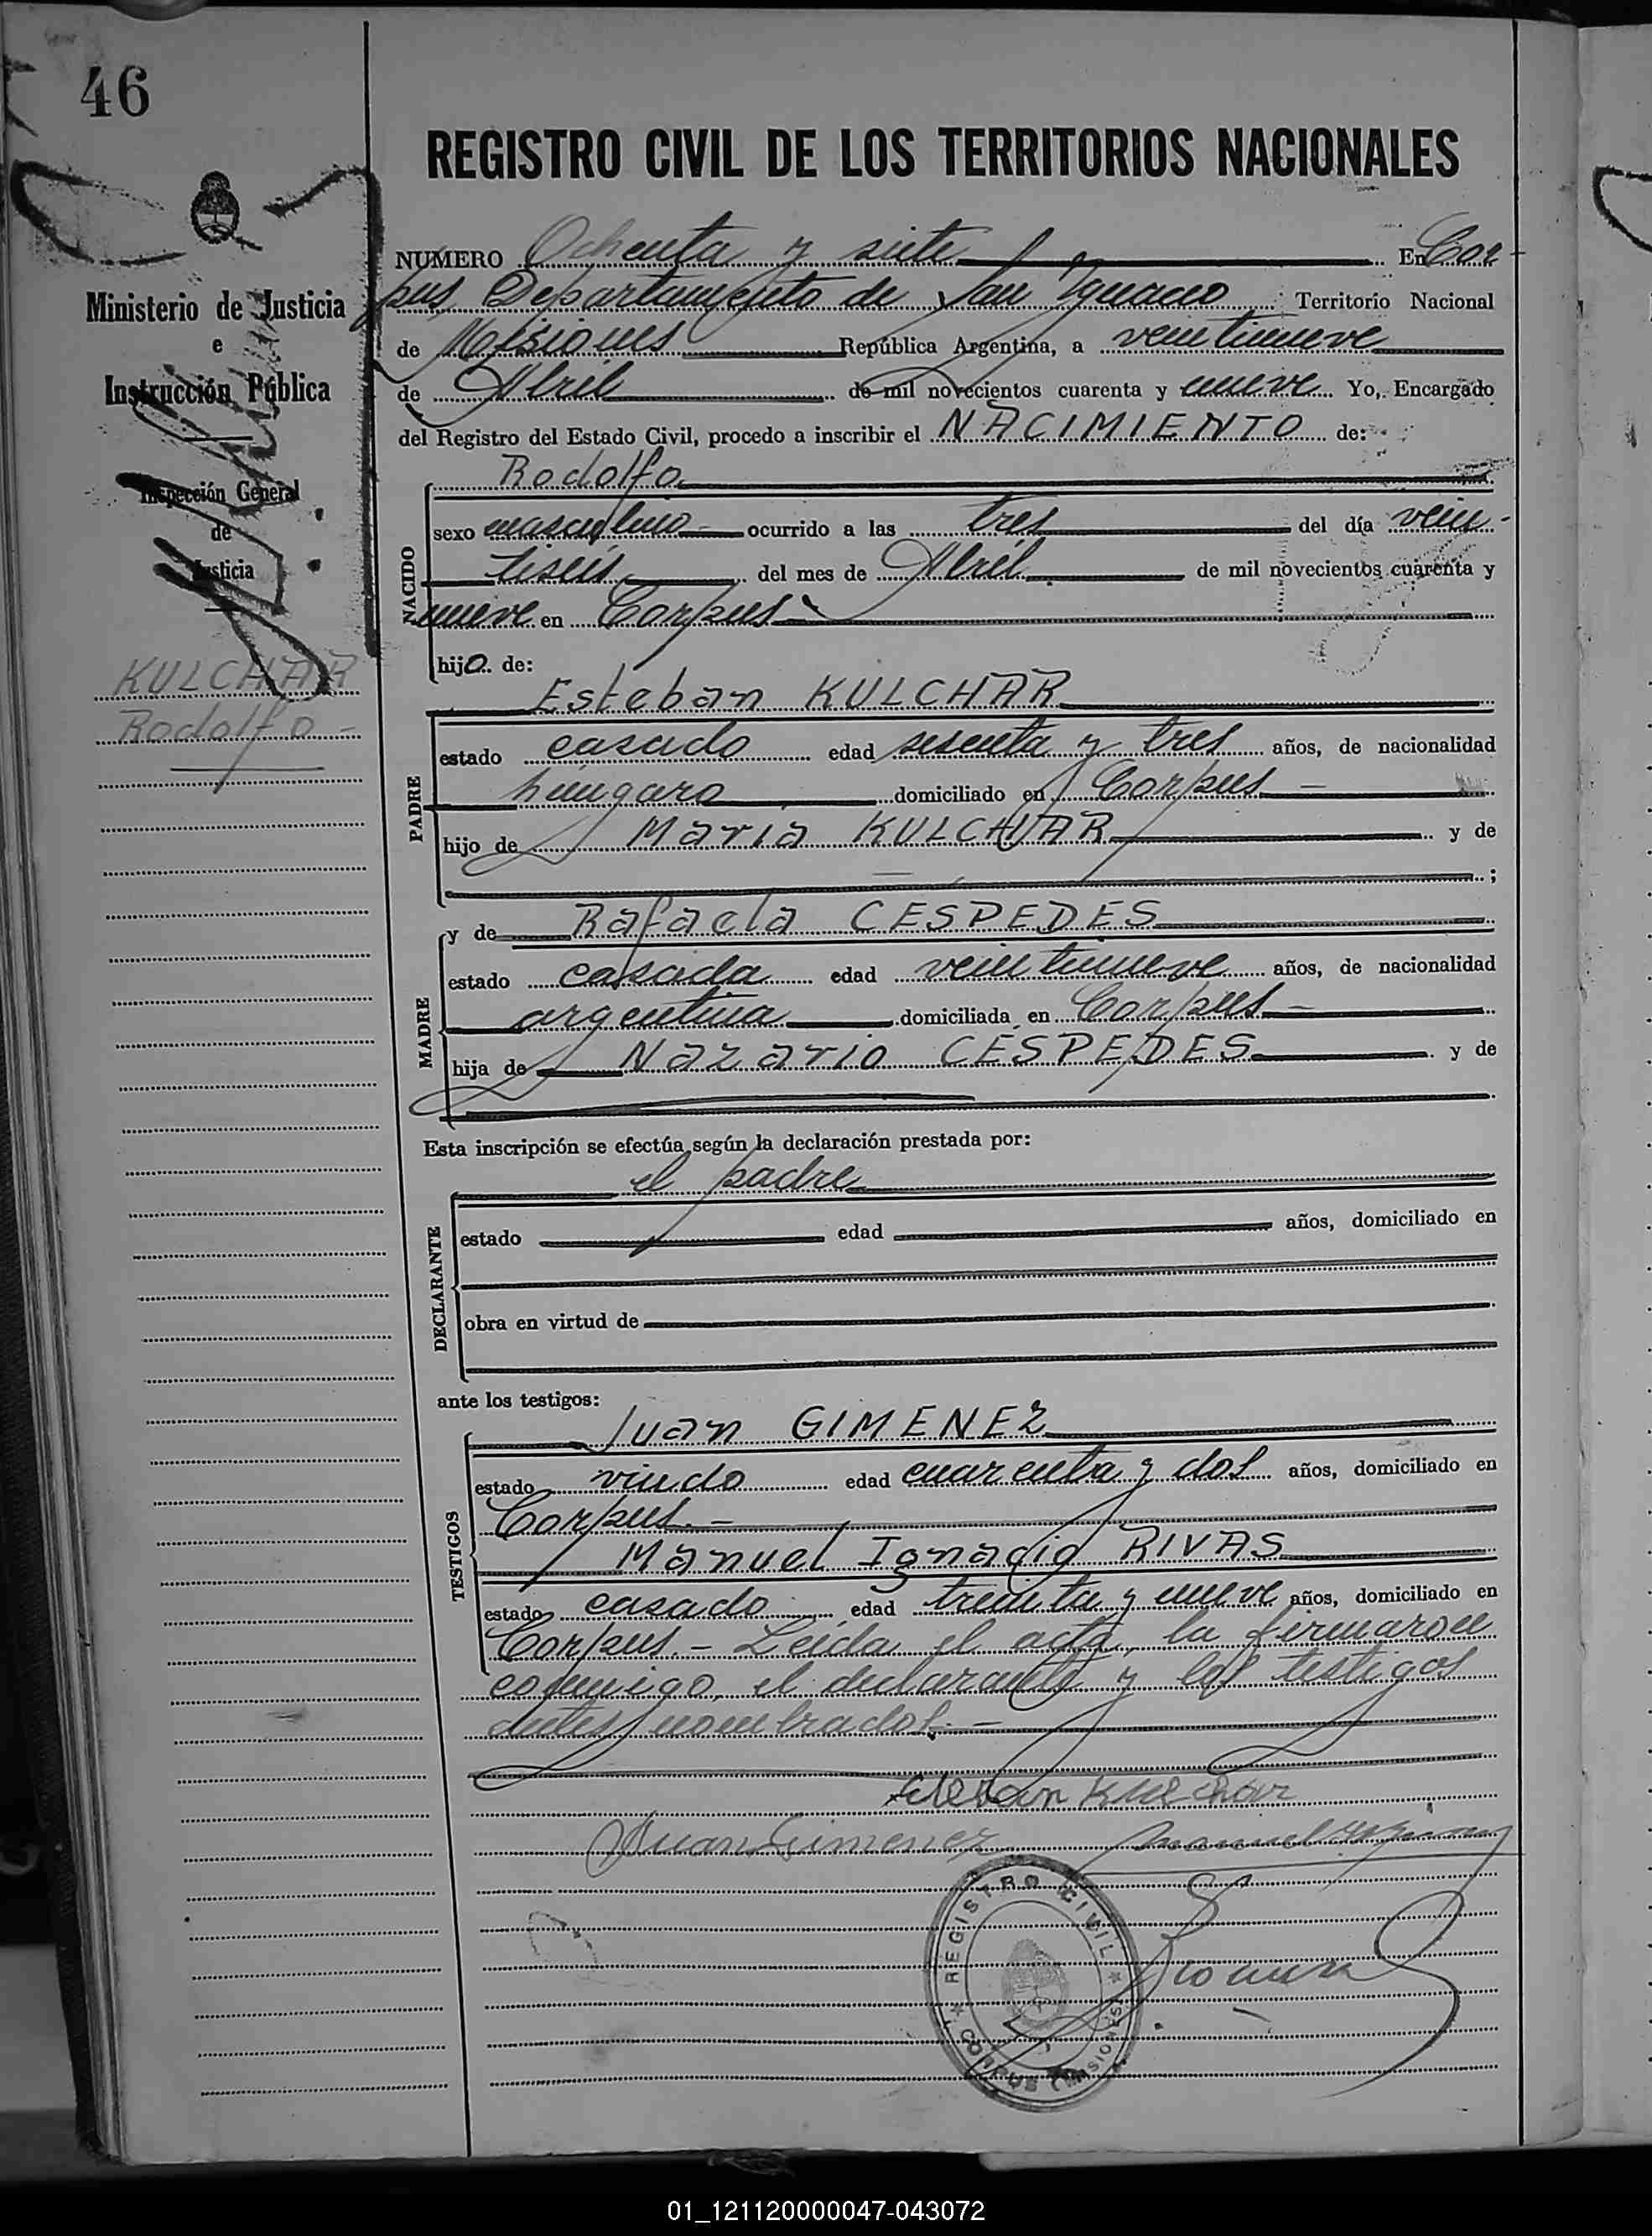 46
REGISTRO CIVIL DE LOS TERRITORIOS NACIONALES
Ministerio de Justicia
e
Instrucción Pública
Inspección General
de
Justicia
KULCHAR
Rodolfo -
NUMERO Ochenta y siete En Cor-
pus Departamento de San Ignacio Territorio Nacional
de Misiones República Argentina, a veintinueve
de Abril de mil novecientos cuarenta y nueve Yo, Encargado
del Registro del Estado Civil, procedo a inscribir el NACIMIENTO de:
NACIDO
Rodolfo
sexo masculino ocurrido a las tres del día vein-
tiseis del mes de Abril de mil novecientos cuarenta y
nueve en Corpus
hijo de:
PADRE
Esteban KULCHAR
estado casado edad sesenta y tres años, de nacionalidad
húngara domiciliado en Corpus -
hijo de Maria KULCHAR y de
;
MADRE
y de Rafaela CESPEDES
estado casada edad veintinueve años, de nacionalidad
argentina domiciliada en Corpus -
hija de Nazario CESPEDES y de
Esta inscripción se efectúa según la declaración prestada por:
DECLARANTE
el padre
estado edad años, domiciliado en
obra en virtud de
ante los testigos:
TESTIGOS
Juan GIMENEZ
estado viudo edad cuarenta y dos años, domiciliado en
Corpus. -
Manuel Ignacio RIVAS
estado casado edad treinta y nueve años, domiciliado en
Corpus. - Leída el acta, la firmaron
conmigo, el declarante y los testigos
antes nombrados. -
Esteban Kulchar
Juan Gimenez
REGISTRO CIVIL
CORPUS (MISIONES)
01_121120000047-043072